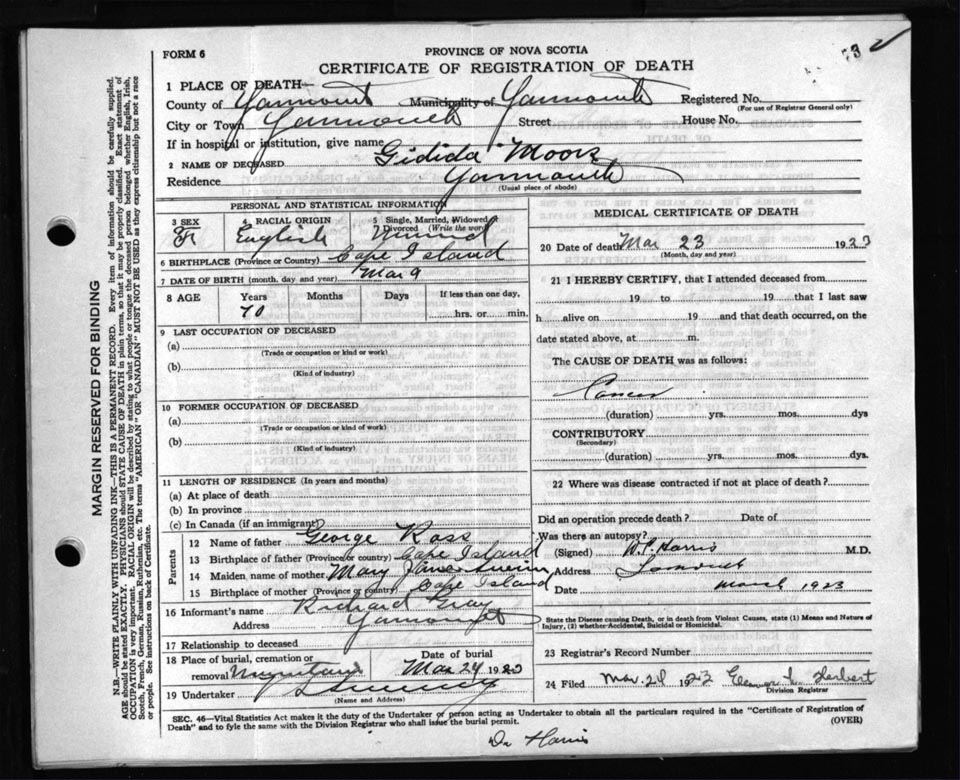 FORM 6
PROVINCE OF NOVA SCOTIA
CERTIFICATE OF REGISTRATION OF DEATH
1 PLACE OF DEATH—
County of Yarmouth Municipality of Yarmouth Registered No.
(For use of Registrar General only)
City or Town Yarmouth Street House No.
If in hospital or institution, give name
2 NAME OF DECEASED Moore
Residence Yarmouth
(Usual place of abode)
PERSONAL AND STATISTICAL INFORMATION
3 SEX F 4 RACIAL ORIGIN English 5 Single, Married, Widowed or Divorced (Write the word)
6 BIRTHPLACE (Province or Country) Cape Island
7 DATE OF BIRTH (month, day and year) Mar 9
8 AGE Years Months Days If less than one day,
70 hrs. or min.
9 LAST OCCUPATION OF DECEASED
(a)
(Trade or occupation or kind or work)
(b)
(Kind of industry)
10 FORMER OCCUPATION OF DECEASED
(a)
(Trade or occupation or kind of work)
(b)
(Kind of industry)
11 LENGTH OF RESIDENCE (In years and months)
(a) At place of death
(b) In province
(c) In Canada (if an immigrant)
Parents
12 Name of father George Ross
13 Birthplace of father (Province or country) Cape Island
14 Maiden name of mother Mary Jane
15 Birthplace of mother (Province or country) Cape Island
16 Informant's name Richard Gray
Address Yarmouth
17 Relationship to deceased
18 Place of burial, cremation or removal Mountain Date of burial Mar 24 1923
19 Undertaker Sweeny
(Name and Address)
MEDICAL CERTIFICATE OF DEATH
20 Date of death Mar 23 1923
(Month, day and year)
21 I HEREBY CERTIFY, that I attended deceased from
19 to 19 that I last saw
h alive on 19 and that death occurred, on
date stated above, at m.
The CAUSE OF DEATH was as follows:
Cancer
(duration) yrs. mos. dys
CONTRIBUTORY
(Secondary)
(duration) yrs. mos. dys.
22 Where was disease contracted if not at place of death?
Did an operation precede death? Date of
Was there an autopsy?
(Signed) Harris M.D.
Address Yarmouth
Date March 1923
State the Disease causing Death, or in death from Violent Causes, state (1) Means and Nature of Injury, (2) whether Accidental, Suicidal or Homicidal.
23 Registrar's Record Number
24 Filed Mar. 1923 Eleanor L. Herbert
Division Registrar
SEC. 46—Vital Statistics Act makes it the duty of the Undertaker or person acting as Undertaker to obtain all the particulars required in the "Certificate of Registration of
Death" and to fyle the same with the Division Registrar who shall issue the burial permit.
(OVER)
Dr Harris
MARGIN RESERVED FOR BINDING
N.B.—WRITE PLAINLY WITH UNFADING INK—THIS IS A PERMANENT RECORD. Every item of information should be carefully supplied.
AGE should be stated EXACTLY. PHYSICIANS should STATE CAUSE OF DEATH in plain terms, so that it may be properly classified. Exact statement of
OCCUPATION is very important. RACIAL ORIGIN will be described by stating to what people or tongue the deceased person belonged, whether English, Irish,
Scotch, French, German, Russian, Ruthenian, etc. The terms "AMERICAN" OR "CANADIAN" MUST NOT BE USED as they express citizenship but not a race
or people. See instructions on back of Certificate.